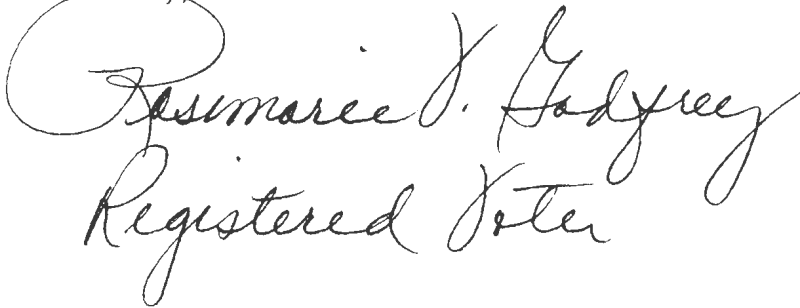 Rosemarie V. Godfrey
Registered Voter